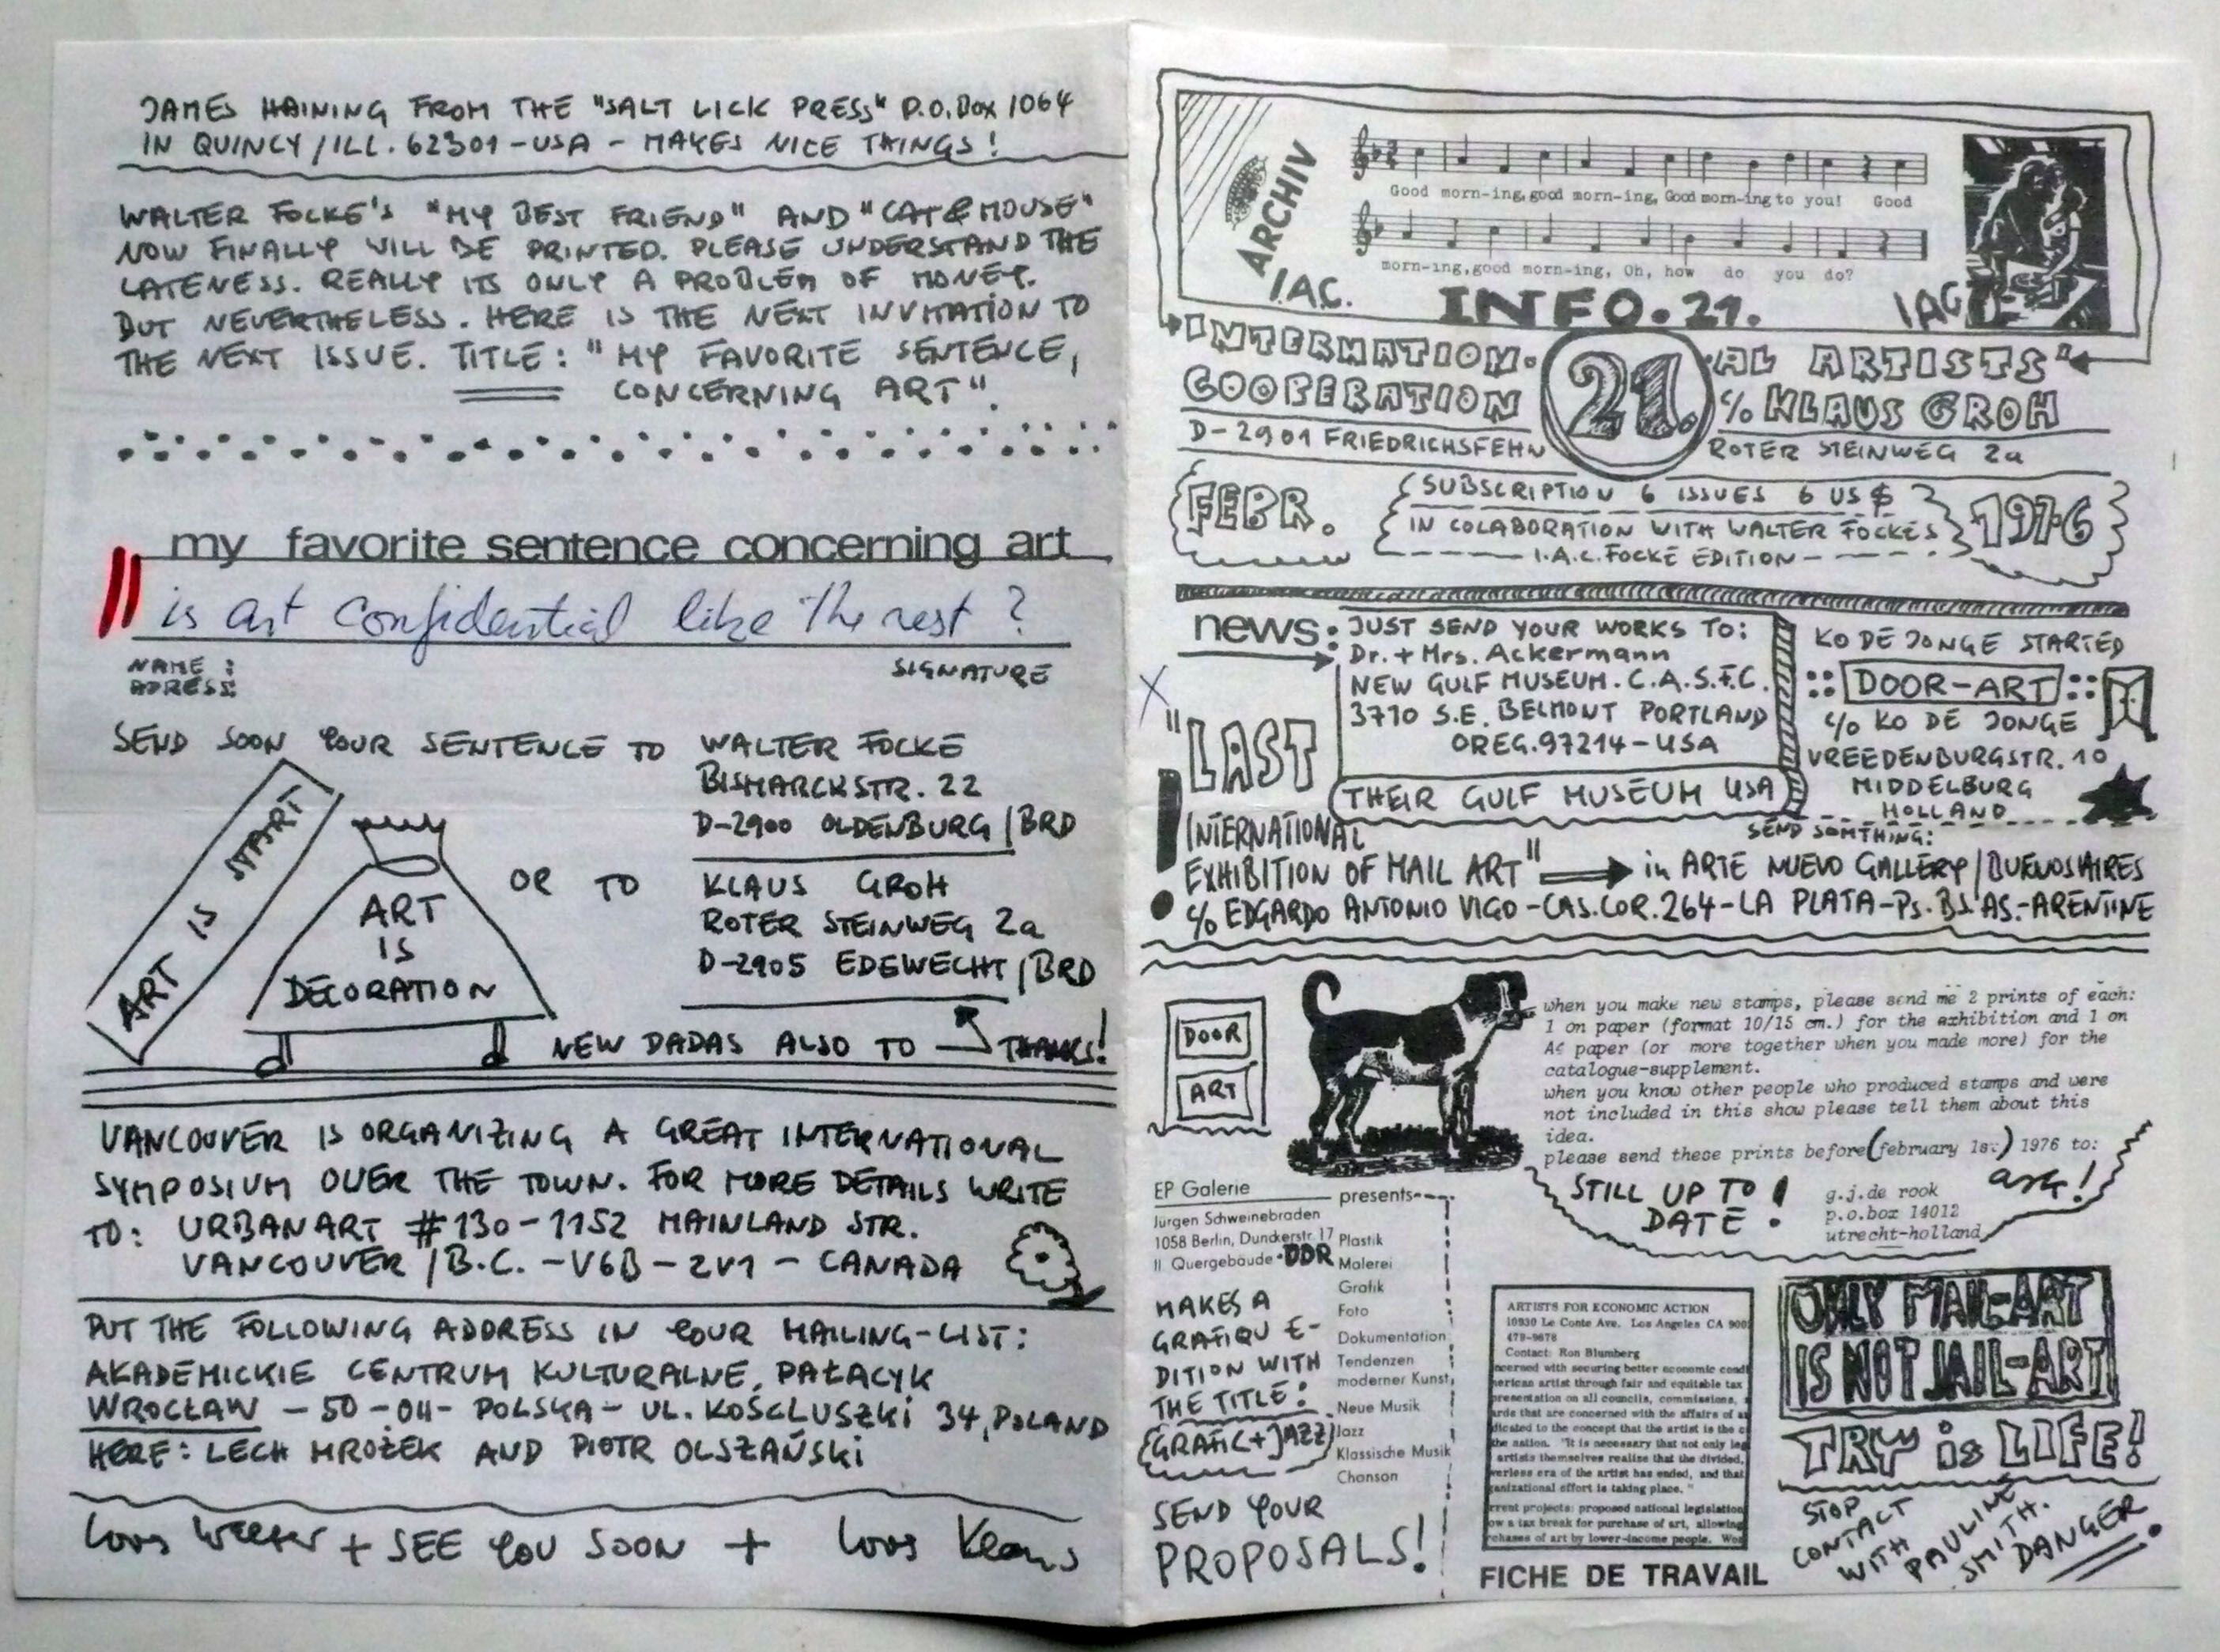 JAMES HAINING FROM THE "SALT LICK PRESS" P.O.BOX 1064
IN QUINCY/ILL. 62301-USA - MAKES NICE THINGS!
WALTER FOCKE'S "MY BEST FRIEND" AND "CAT & MOUSE"
NOW FINALLY WILL BE PRINTED. PLEASE UNDERSTAND THE
LATENESS. REALLY ITS ONLY A PROBLEM OF MONEY.
BUT NEVERTHELESS. HERE IS THE NEXT INVITATION TO
THE NEXT ISSUE. TITLE: "MY FAVORITE SENTENCE,
CONCERNING ART".
my favorite sentence concerning art
is art confidential like the rest?
NAME:
ADRESS:
SIGNATURE
SEND SOON YOUR SENTENCE TO WALTER FOCKE
BISMARCKSTR. 22
D-2900 OLDENBURG/BRD
OR TO KLAUS GROH
ROTER STEINWEG 2a
D-2905 EDEWECHT/BRD
ART IS START
ART
IS
DECORATION
NEW DADAS ALSO TO THANKS!
VANCOUVER IS ORGANIZING A GREAT INTERNATIONAL
SYMPOSIUM OVER THE TOWN. FOR MORE DETAILS WRITE
TO: URBANART #130-1152 MAINLAND STR.
VANCOUVER/B.C. -V6B-2V1- CANADA
PUT THE FOLLOWING ADDRESS IN YOUR MAILING-LIST:
AKADEMICKIE CENTRUM KULTURALNE, PAŁACYK
WROCŁAW -50-011- POLSKA- UL. KOŚCLUSZKI 34, POLAND
HERE: LECH MROŻEK AND PIOTR OLSZAŃSKI
Love Walter + SEE YOU SOON + Love Klaus
ARCHIV
I.AC.
Good morn-ing, good morn-ing, Good morn-ing to you! Good
morn-ing, good morn-ing, Oh, how do you do?
INFO.21.
IAC
INTERNATION- AL ARTISTS'
COOPERATION 21. % KLAUS GROH
D-2901 FRIEDRICHSFEHN ROTER STEINWEG 2a
FEBR. 1976
SUBSCRIPTION 6 ISSUES 6 US $
IN COLABORATION WITH WALTER FOCKES
I.A.C. FOCKE EDITION
news:
JUST SEND YOUR WORKS TO:
Dr. + Mrs. Ackermann
NEW GULF MUSEUM. C.A.S.F.C.
3710 S.E. BELMONT PORTLAND
OREG. 97214-USA
THEIR GULF MUSEUM USA
KO DE JONGE STARTED
DOOR-ART
c/o KO DE JONGE
VREEDENBURGSTR. 10
MIDDELBURG
HOLLAND
SEND SOMTHING:
"LAST
INTERNATIONAL
EXHIBITION OF MAIL ART" in ARTE NUEVO GALLERY/BUENOS AIRES
c/o EDGARDO ANTONIO VIGO-CAS.COR.264-LA PLATA-Ps.BS.AS.-ARENTINE
DOOR
ART
when you make new stamps, please send me 2 prints of each:
1 on paper (format 10/15 cm.) for the exhibition and 1 on
A4 paper (or more together when you made more) for the
catalogue-supplement.
when you know other people who produced stamps and were
not included in this show please tell them about this
idea.
please send these prints before (february 1st.) 1976 to:
STILL UP TO
DATE!
g.j.de rook
p.o.box 14012
utrecht-holland
EP Galerie presents
Jürgen Schweinebraden
1058 Berlin, Dunckerstr. 17
II Quergebäude DDR
Plastik
Malerei
Grafik
Foto
Dokumentation
Tendenzen
moderner Kunst
Neue Musik
Jazz
Klassische Musik
Chanson
MAKES A
GRAFIQU E-
DITION WITH
THE TITLE:
GRAFIC+JAZZ
SEND YOUR
PROPOSALS!
ARTISTS FOR ECONOMIC ACTION
10930 Le Conte Ave. Los Angeles CA 900
479-9678
Contact: Ron Blumberg
ncerned with securing better economic condi
merican artist through fair and equitable tax
presentation on all councils, commissions,
ards that are concerned with the affairs of a
dicated to the concept that the artist is the
the nation. "It is necessary that not only
artists themselves realize that the divided,
verless era of the artist has ended, and that
ganizational effort is taking place."
rrent projects: proposed national legislation
ow a tax break for purchase of art, allowing
rchases of art by lower-income people.
FICHE DE TRAVAIL
ONLY MAIL-ART
IS NOT JAIL-ART
TRY is LIFE!
STOP
CONTACT
WITH
PAULINE
SMITH.
DANGER!